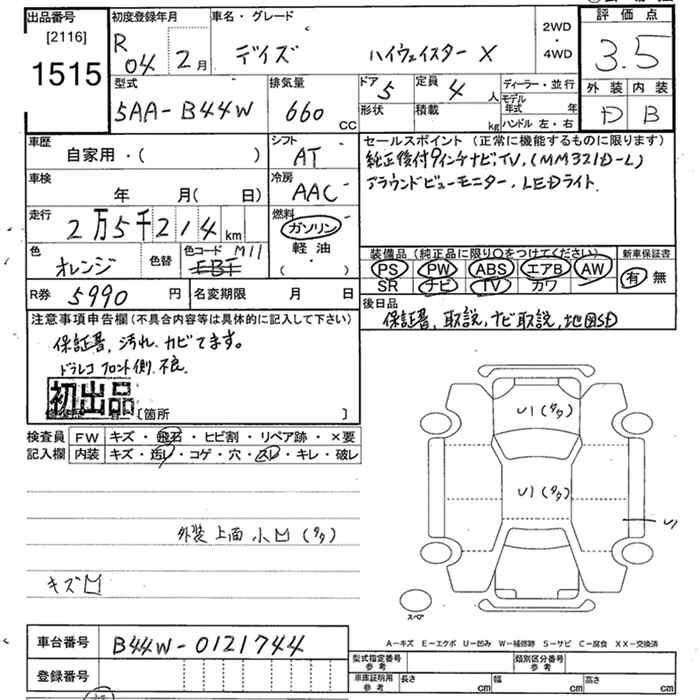 出品番号
[2116]
1515
初度登録年月
R 04 2月
車名・グレード
デイズ ハイウェイスター X
2WD
・
4WD
評価点
3.5
外装 内装
D B
型式
5AA-B44W
排気量
660 CC
ドア 5
形状
定員 4 人
積載 kg
ディーラー・並行
モデル年式 年
ハンドル 左・右
車歴
自家用・( )
シフト
AT
車検
年 月(日)
冷房
AAC
走行
2万5千214 km
燃料
ガソリン
軽油
( ・ )
色
オレンジ
色替
色コード M11
EBF
R券 5990 円
名変期限 月 日
セールスポイント(正常に機能するものに限ります)
純正後付9インチナビTV,(MM321D-L)
アラウンドビューモニター、LEDライト
装備品(純正品に限り○をつけてください)
PS PW ABS エアB AW
SR ナビ TV カワ
新車保証書
有 無
後日品
保証書,取説,ナビ取説,地図SD
注意事項申告欄(不具合内容等は具体的に記入して下さい)
保証書、汚れ、カビてます。
ドラレコ フロント側 不良
初出品
[箇所 ]
検査員 FW キズ・飛石・ヒビ割・リペア跡・×要
記入欄 内装 キズ・汚レ・コゲ・穴・スレ・キレ・破レ
外装 上面 小凹(タタ)
キズ凹
U1(タタ)
U1(タタ)
スペア
A-キズ E-エクボ U-凹み W-補修跡 S-サビ C-腐食 XX-交換済
車台番号 B44W-0121744
登録番号
型式指定番号 参考
類別区分番号 参考
車庫証明用 参考 長さ cm 幅 cm 高さ cm